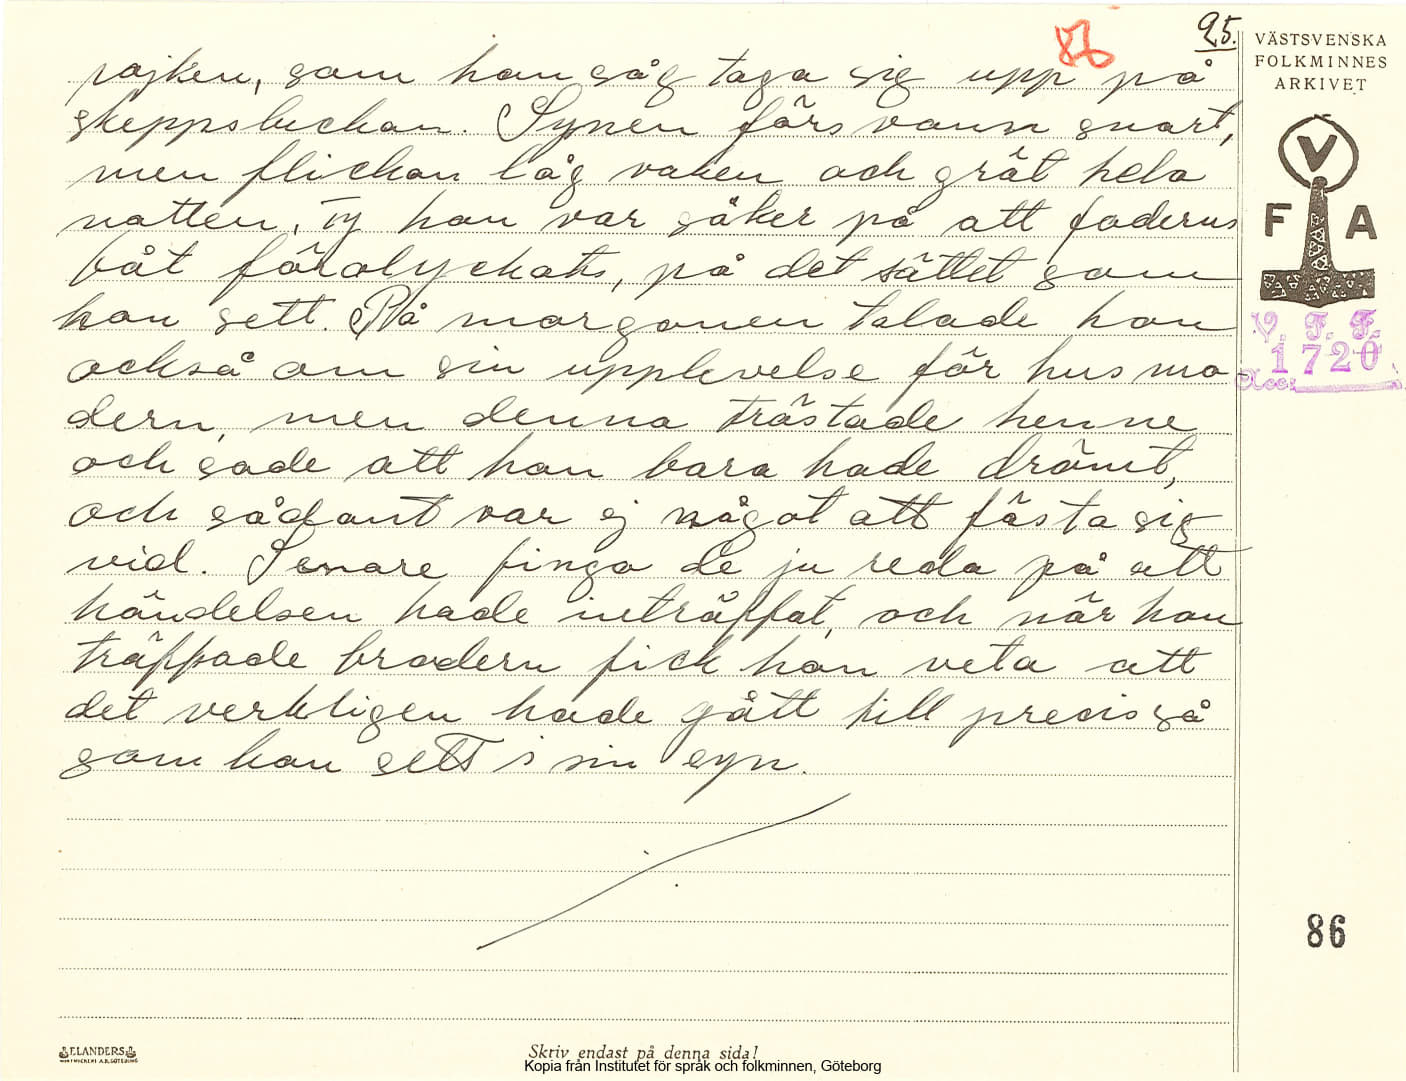 86
95.
VÄSTSVENSKA
FOLKMINNES
ARKIVET
pojken, som hon såg taga sig upp på
skeppsluckan. Synen försvann snart,
men flickan låg vaken och grät hela
natten, ty hon var säker på att faderns
båt förolyckats, på det sättet som
hon sett. På morgonen talade hon
också om sin upplevelse för husmo-
dern, men denna tröstade henne
och sade att hon bara hade drömt,
och sådant var ej något att fästa sig
vid. Senare finga de ju reda på att
händelsen hade inträffat, och när hon
träffade brodern fick hon veta att
det verkligen hade gått till precis så
som hon sett i sin syn.
V
F A
V. F. F.
1720
Acc:
86
ELANDERS
Skriv endast på denna sida!
Kopia från Institutet för språk och folkminnen, Göteborg